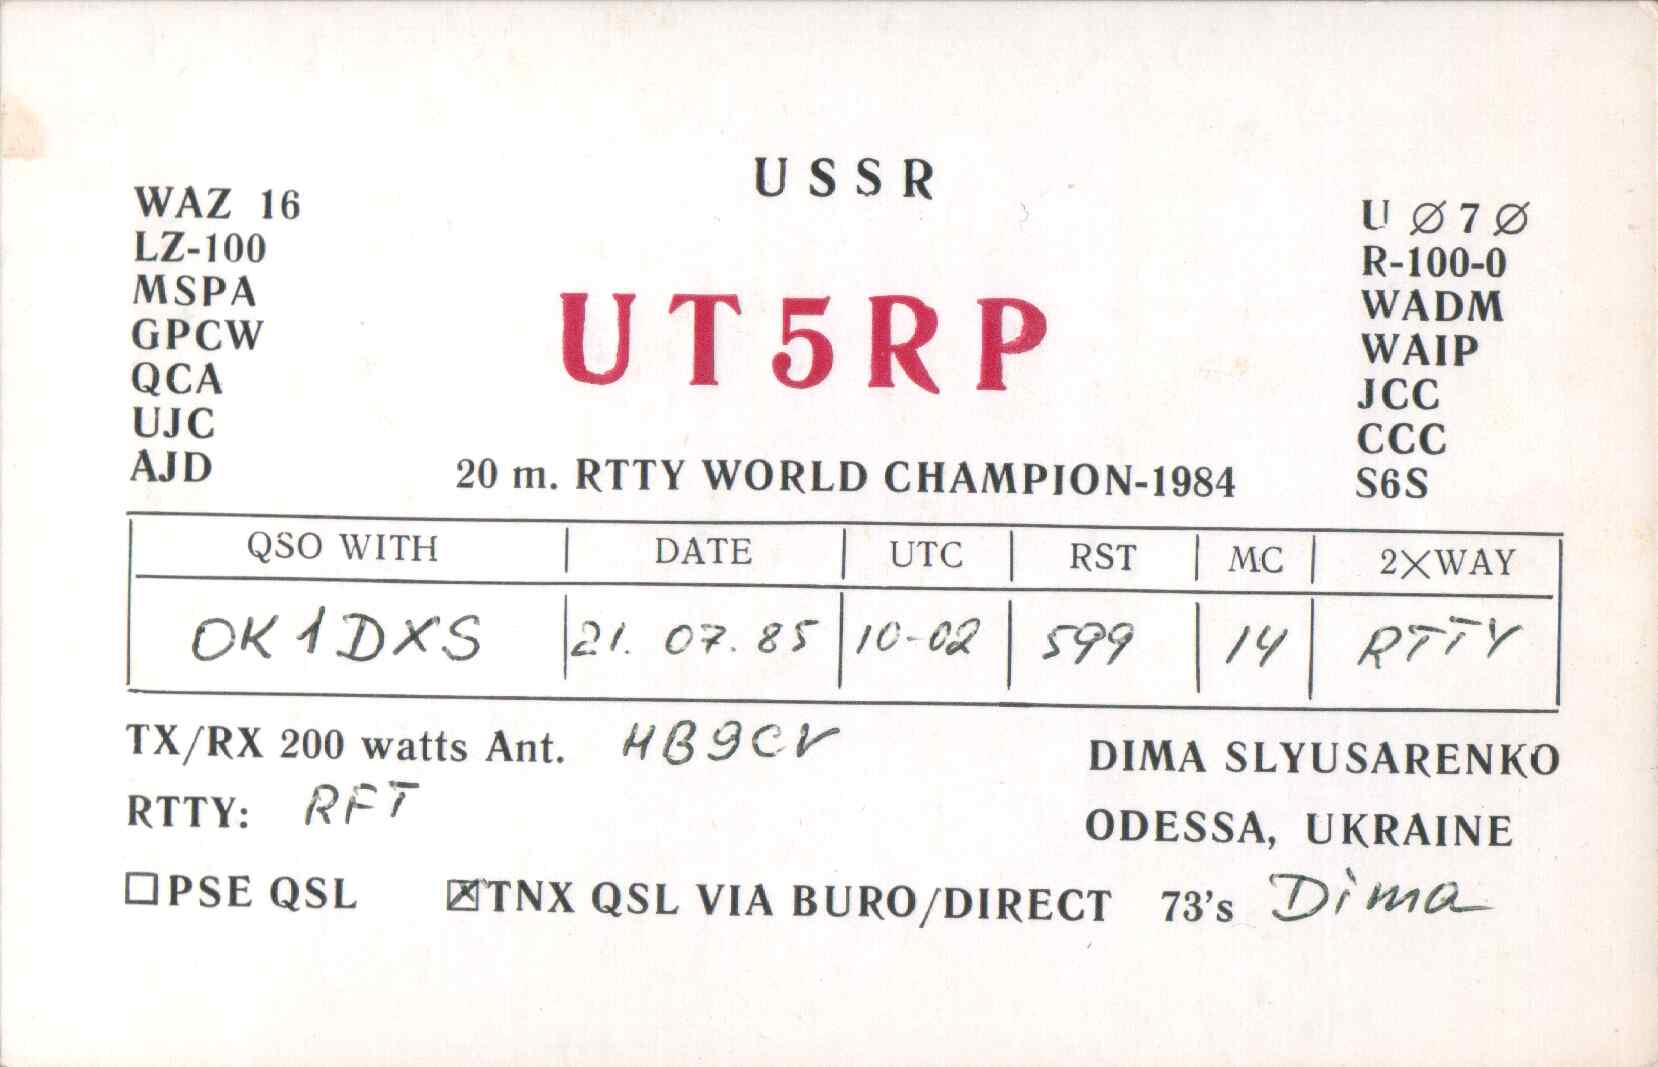 USSR
WAZ 16
LZ-100
MSPA
GPCW
QCA
UJC
AJD
UT5RP
U Ø7Ø
R-100-0
WADM
WAIP
JCC
CCC
S6S
20 m. RTTY WORLD CHAMPION-1984
QSO WITH | DATE | UTC | RST | MC | 2XWAY
OK1DXS | 21. 07. 85 | 10-02 | 599 | 14 | RTTY
TX/RX 200 watts Ant. HB9CV
RTTY: RFT
DIMA SLYUSARENKO
ODESSA, UKRAINE
☐PSE QSL ☒TNX QSL VIA BURO/DIRECT 73's Dima